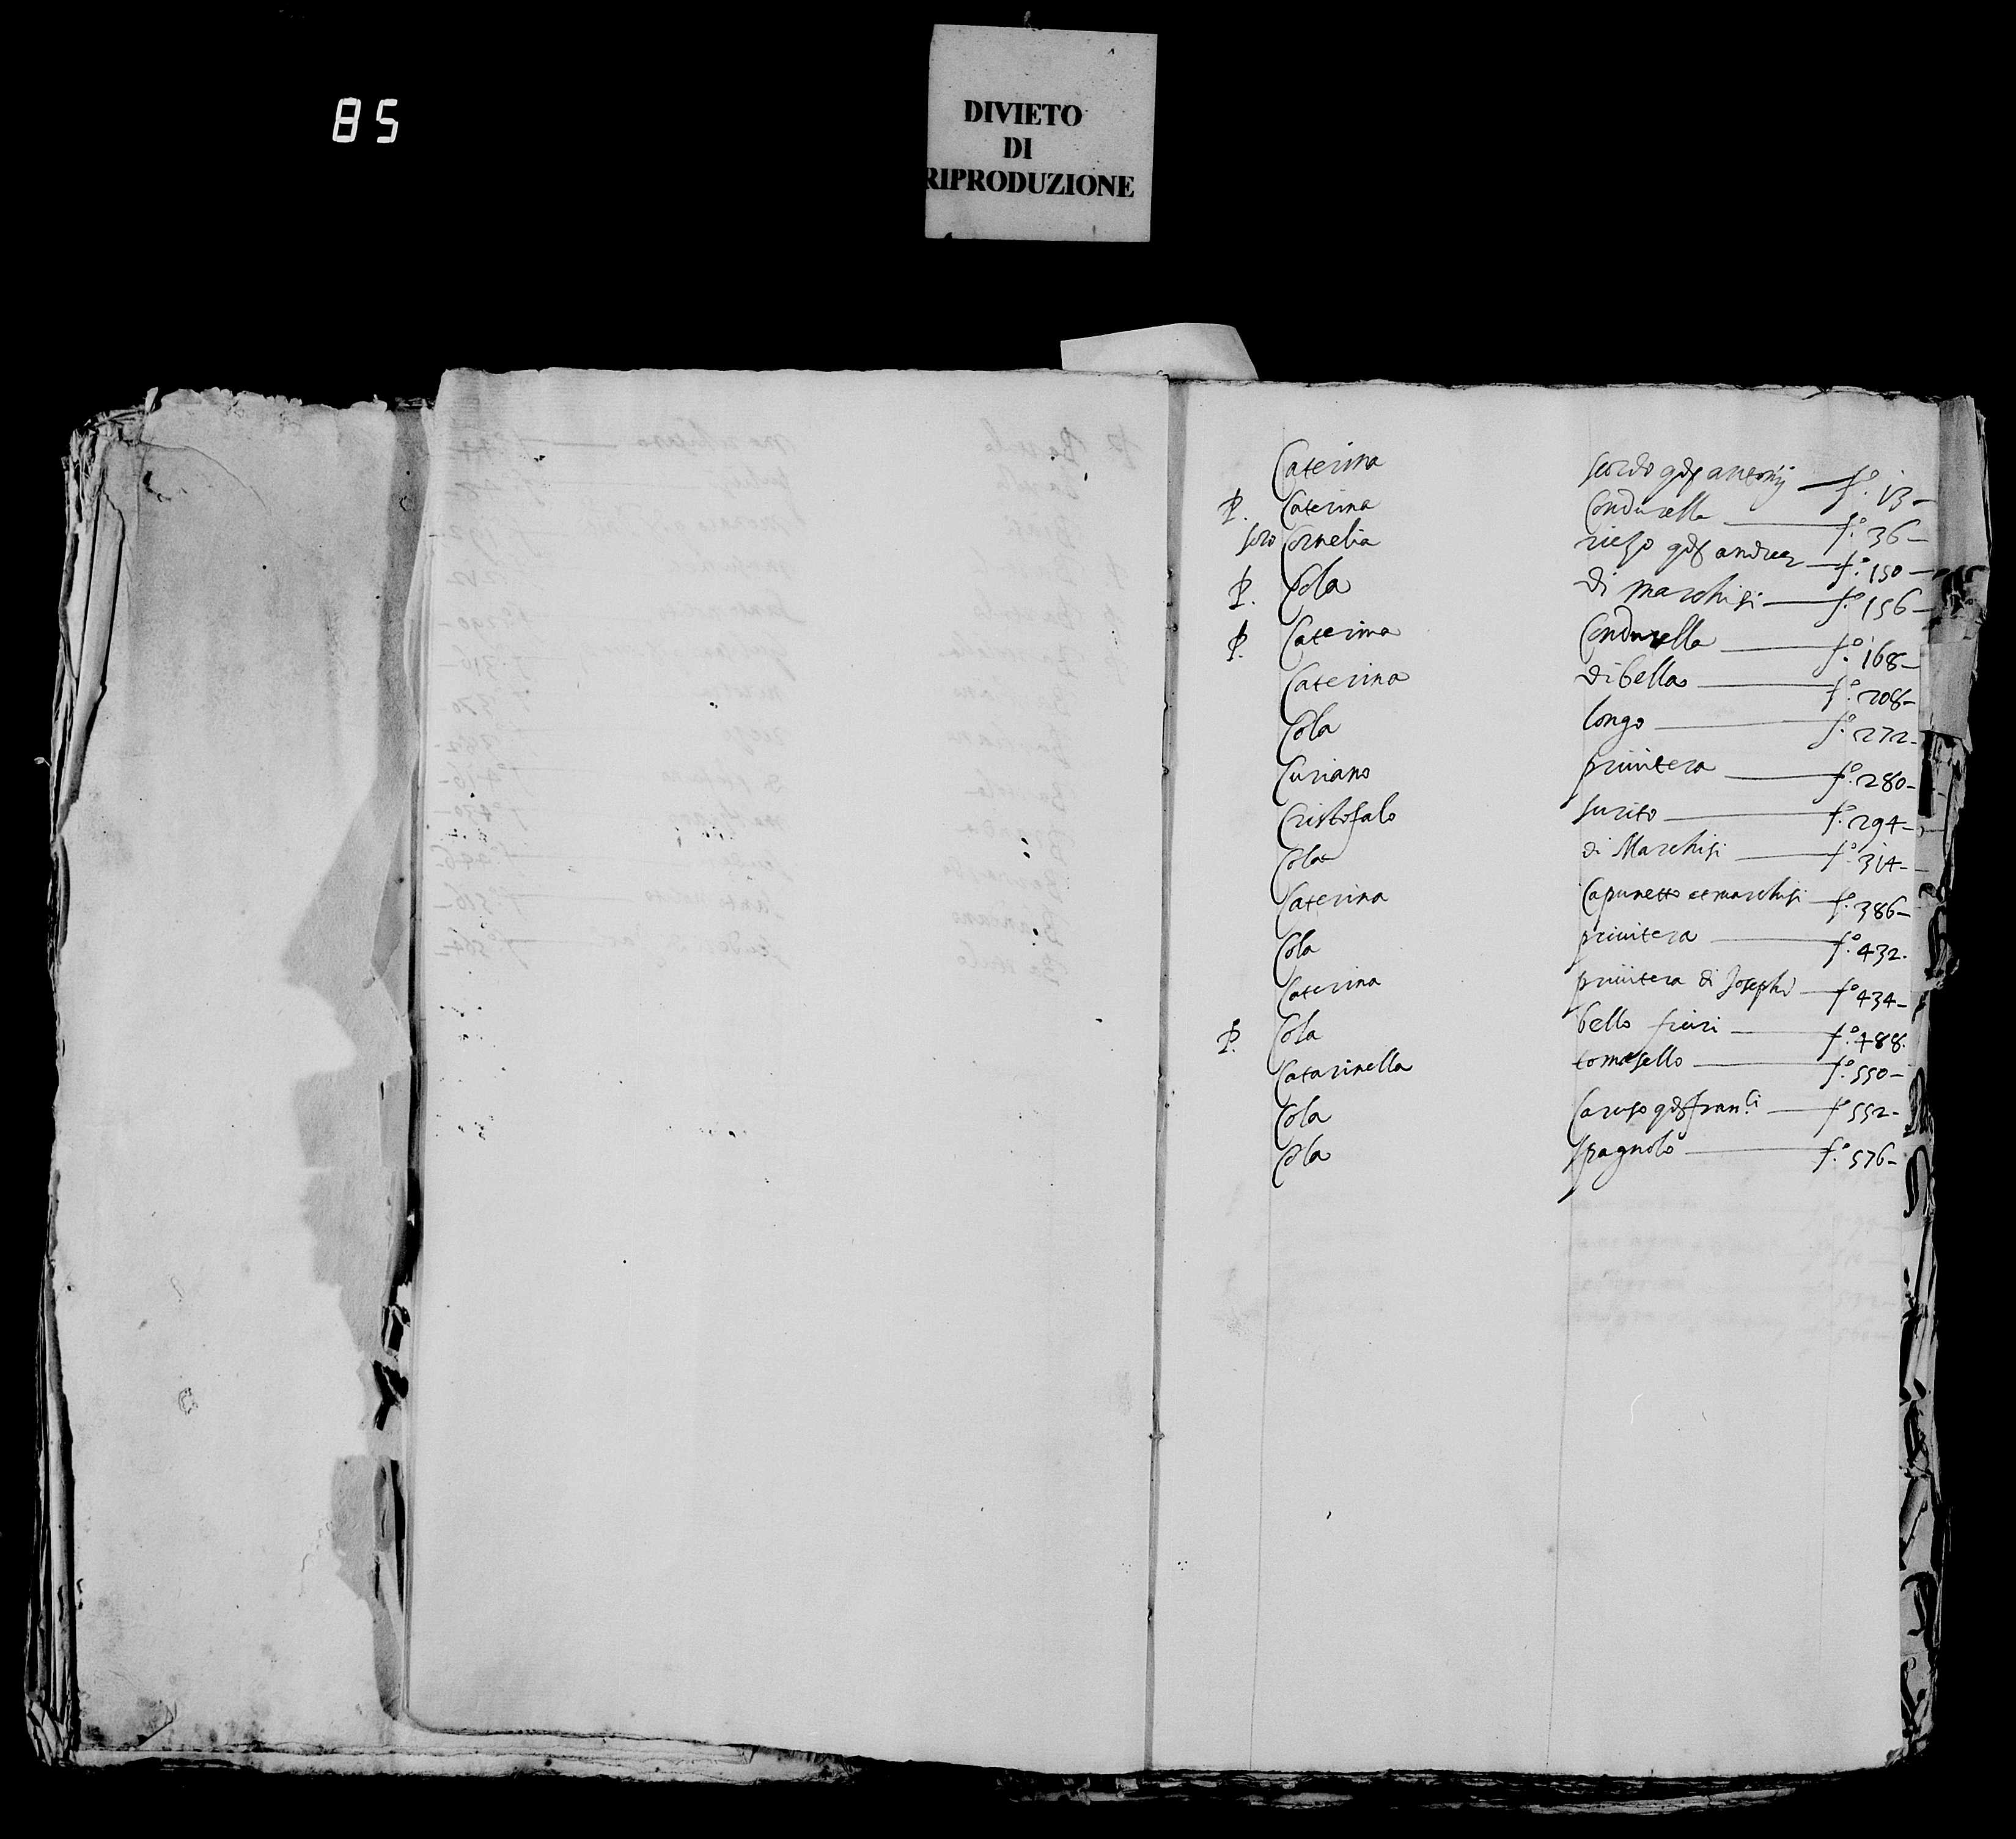 85
DIVIETO
DI
RIPRODUZIONE
Caterina scordo qdȝ antonij f.º 13
P. Caterina Condurella f.º 36
soro Cornelia riczo qdȝ andree f.º 150
P. Cola di marchisi f.º 156
P. Caterina Condurella f.º 168
Caterina di bella f.º 208
Cola longo f.º 272
Curiano privitera f.º 280
Cristofalo surito f.º 294
Cola di Marchisi f.º 314
Caterina Capunetto et marchisi f.º 386
Cola privitera f.º 432
Caterina privitera di Joseph f.º 434
P. Cola bello fiuri f.º 488
Catarinella tomasello f.º 550
Cola Caruso qdȝ fran.ci f.º 552
Cola spagnolo f.º 576